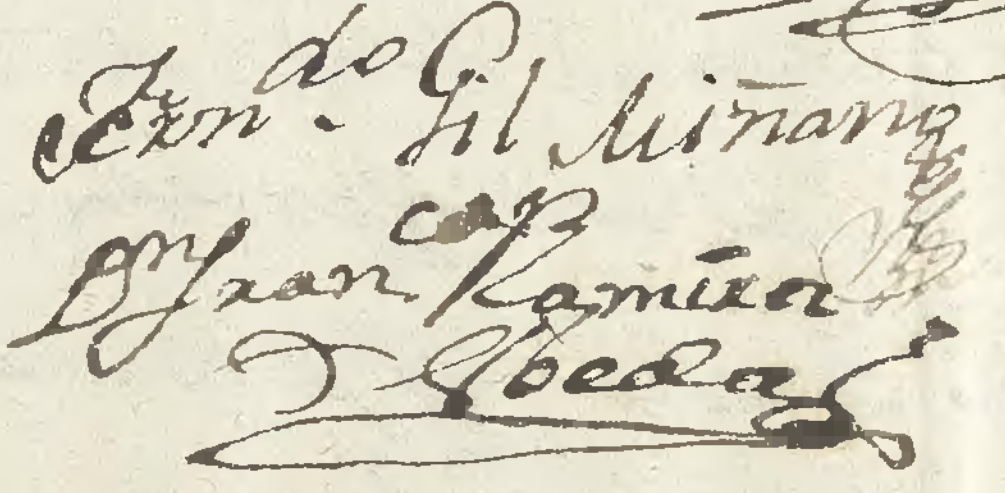 Fern.do Gil Miñano
Dn Fran.co Ramirez
Ubeda